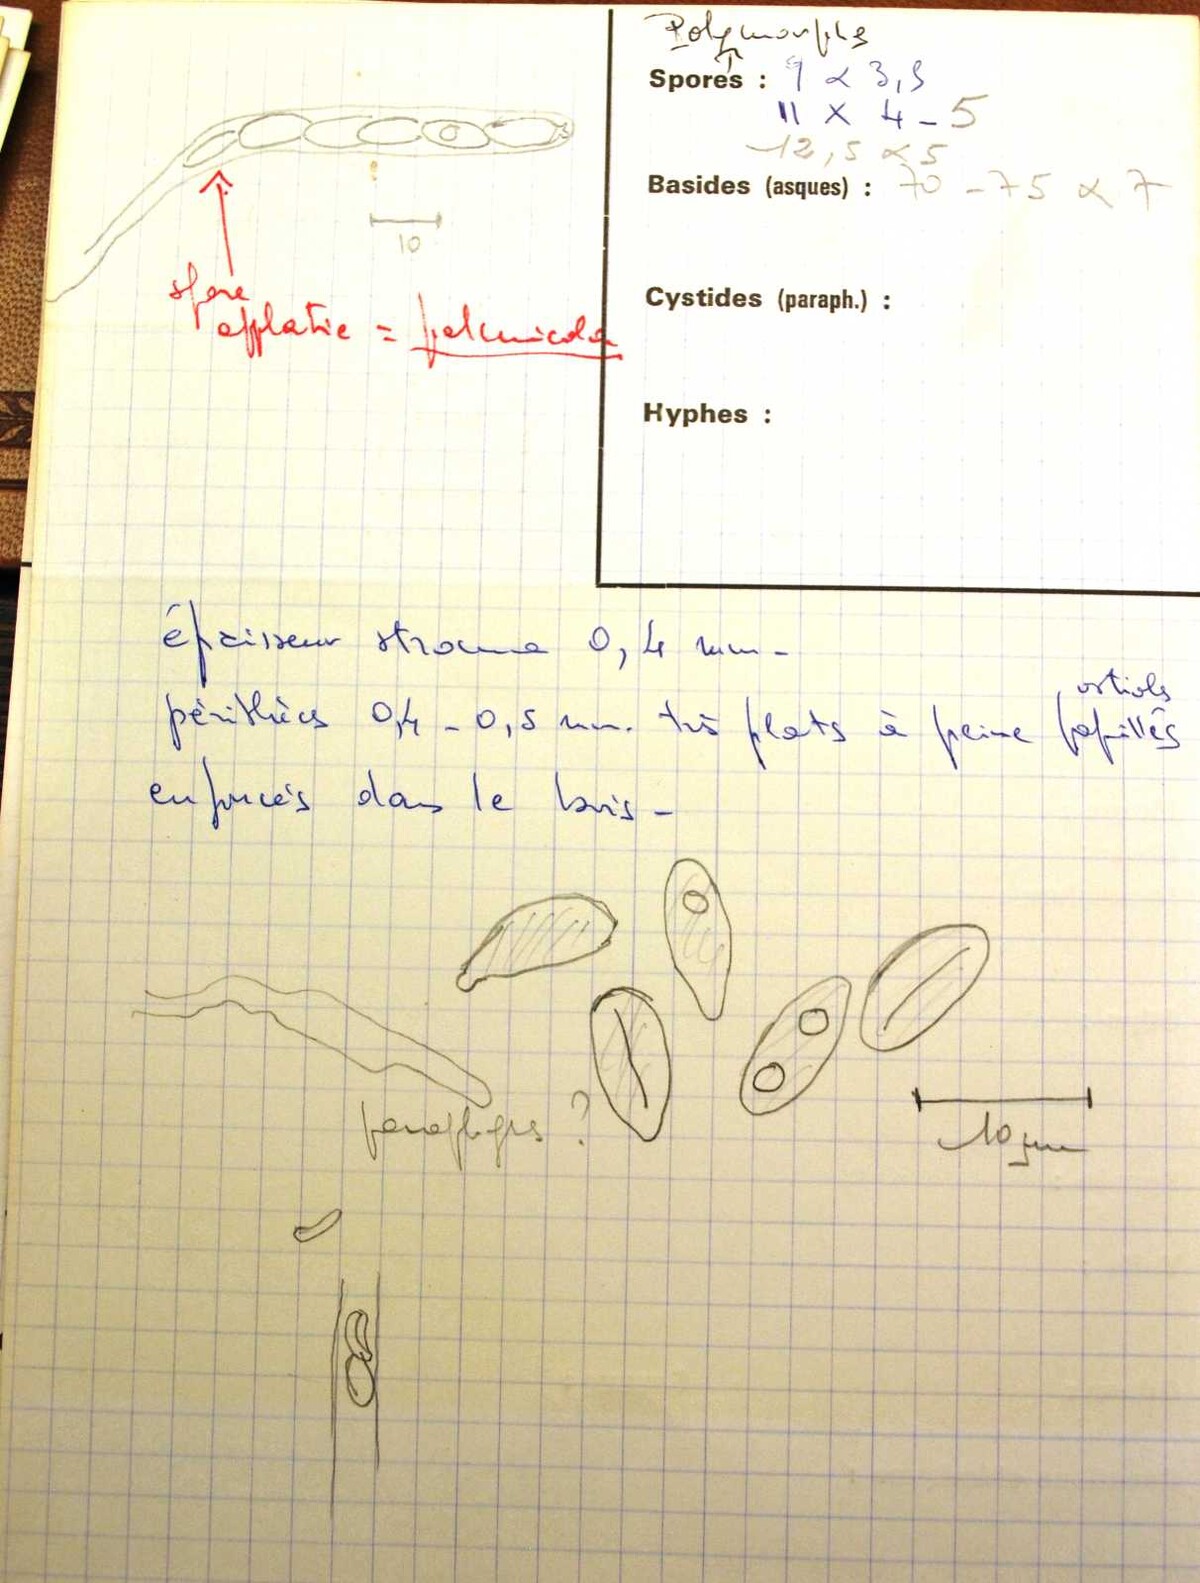 Polymorphe
Spores : 9 x 3,5
11 x 4-5
12,5 x 5
Basides (asques) : 70-75 x 7
Cystides (paraph.) :
Hyphes :
10
spore
applatie =
épaisseur stroma 0,4 mm-
ostiols
périthèces 0,4-0,5 mm. très plats à peine papillés
enfoncés dans le bois-
paraphyses ?
10 µm